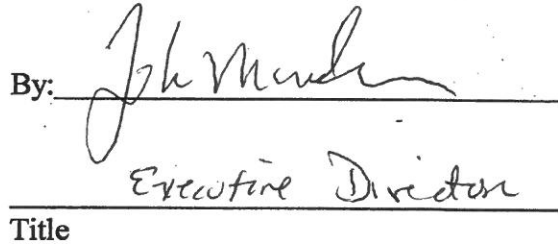 By: John
Executive Director
Title